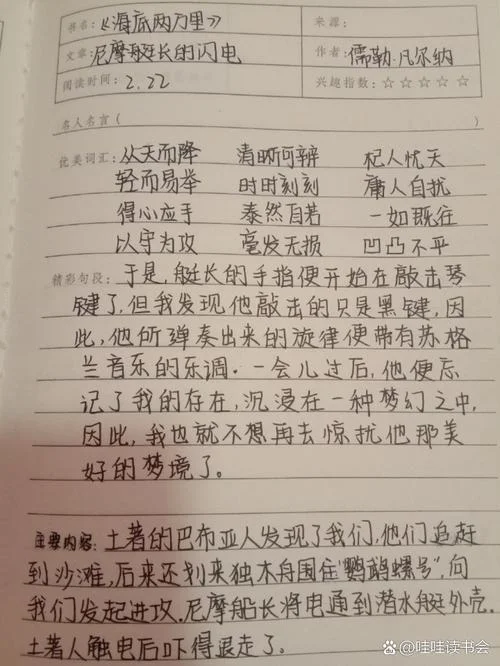 书名:《海底两万里》 来源:
文章:尼摩艇长的闪电 作者:儒勒·凡尔纳
阅读时间:2.22 兴趣指数:☆☆☆☆☆
名人名言( )
优美词汇:从天而降 清晰可辨 杞人忧天
轻而易举 时时刻刻 庸人自扰
得心应手 泰然自若 一如既往
以守为攻 毫发无损 凹凸不平
精彩句段:于是,艇长的手指便开始在敲击琴
键了,但我发现他敲击的只是黑键,因
此,他所弹奏出来的旋律便带有苏格
兰音乐的乐调.一会儿过后,他便忘
记了我的存在,沉浸在一种梦幻之中,
因此,我也就不想再去惊扰他那美
好的梦境了。
主要内容:土著的巴布亚人发现了我们,他们追赶
到沙滩,后来还划来独木舟围住“鹦鹉螺号”,向
我们发起进攻.尼摩船长将电通到潜水艇外壳.
土著人触电后吓得退走了。
@哇哇读书会